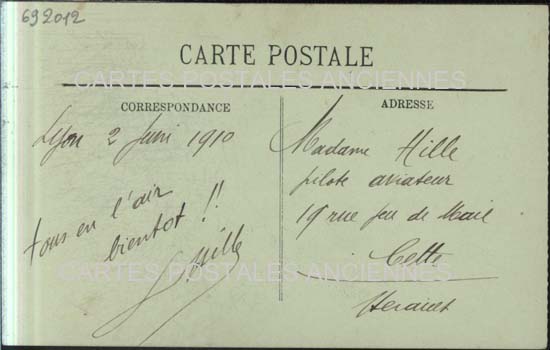 692012
CARTE POSTALE
CARTES POSTALES ANCIENNES
CORRESPONDANCE
Lyon 2 Juni 1910
tous en l'air
bientot !!
Hille
ADRESSE
Madame Hille
pilote aviateur
19 rue Jeu de Mail
Cette
Herault
CARTES POSTALES ANCIENNES